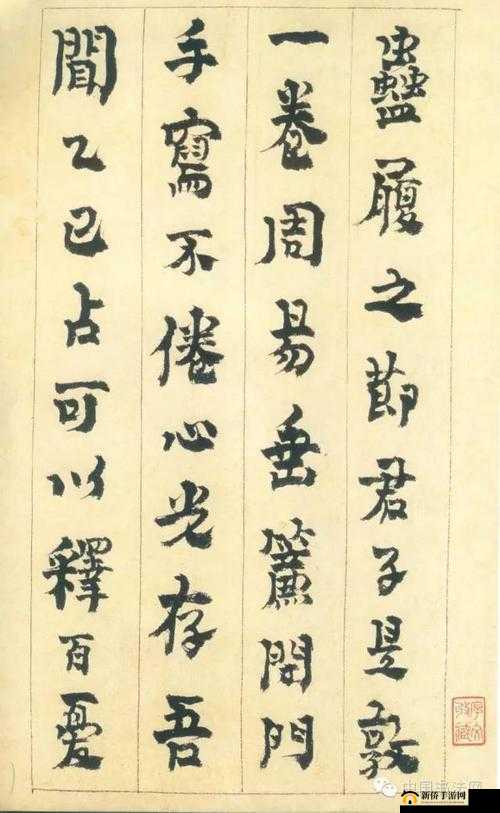 蠱履之節君子是敦
一卷周易垂簾閉門
手寫不倦心光存吾
聞乙巳占可以釋百憂
中国书法网
新侨手游网